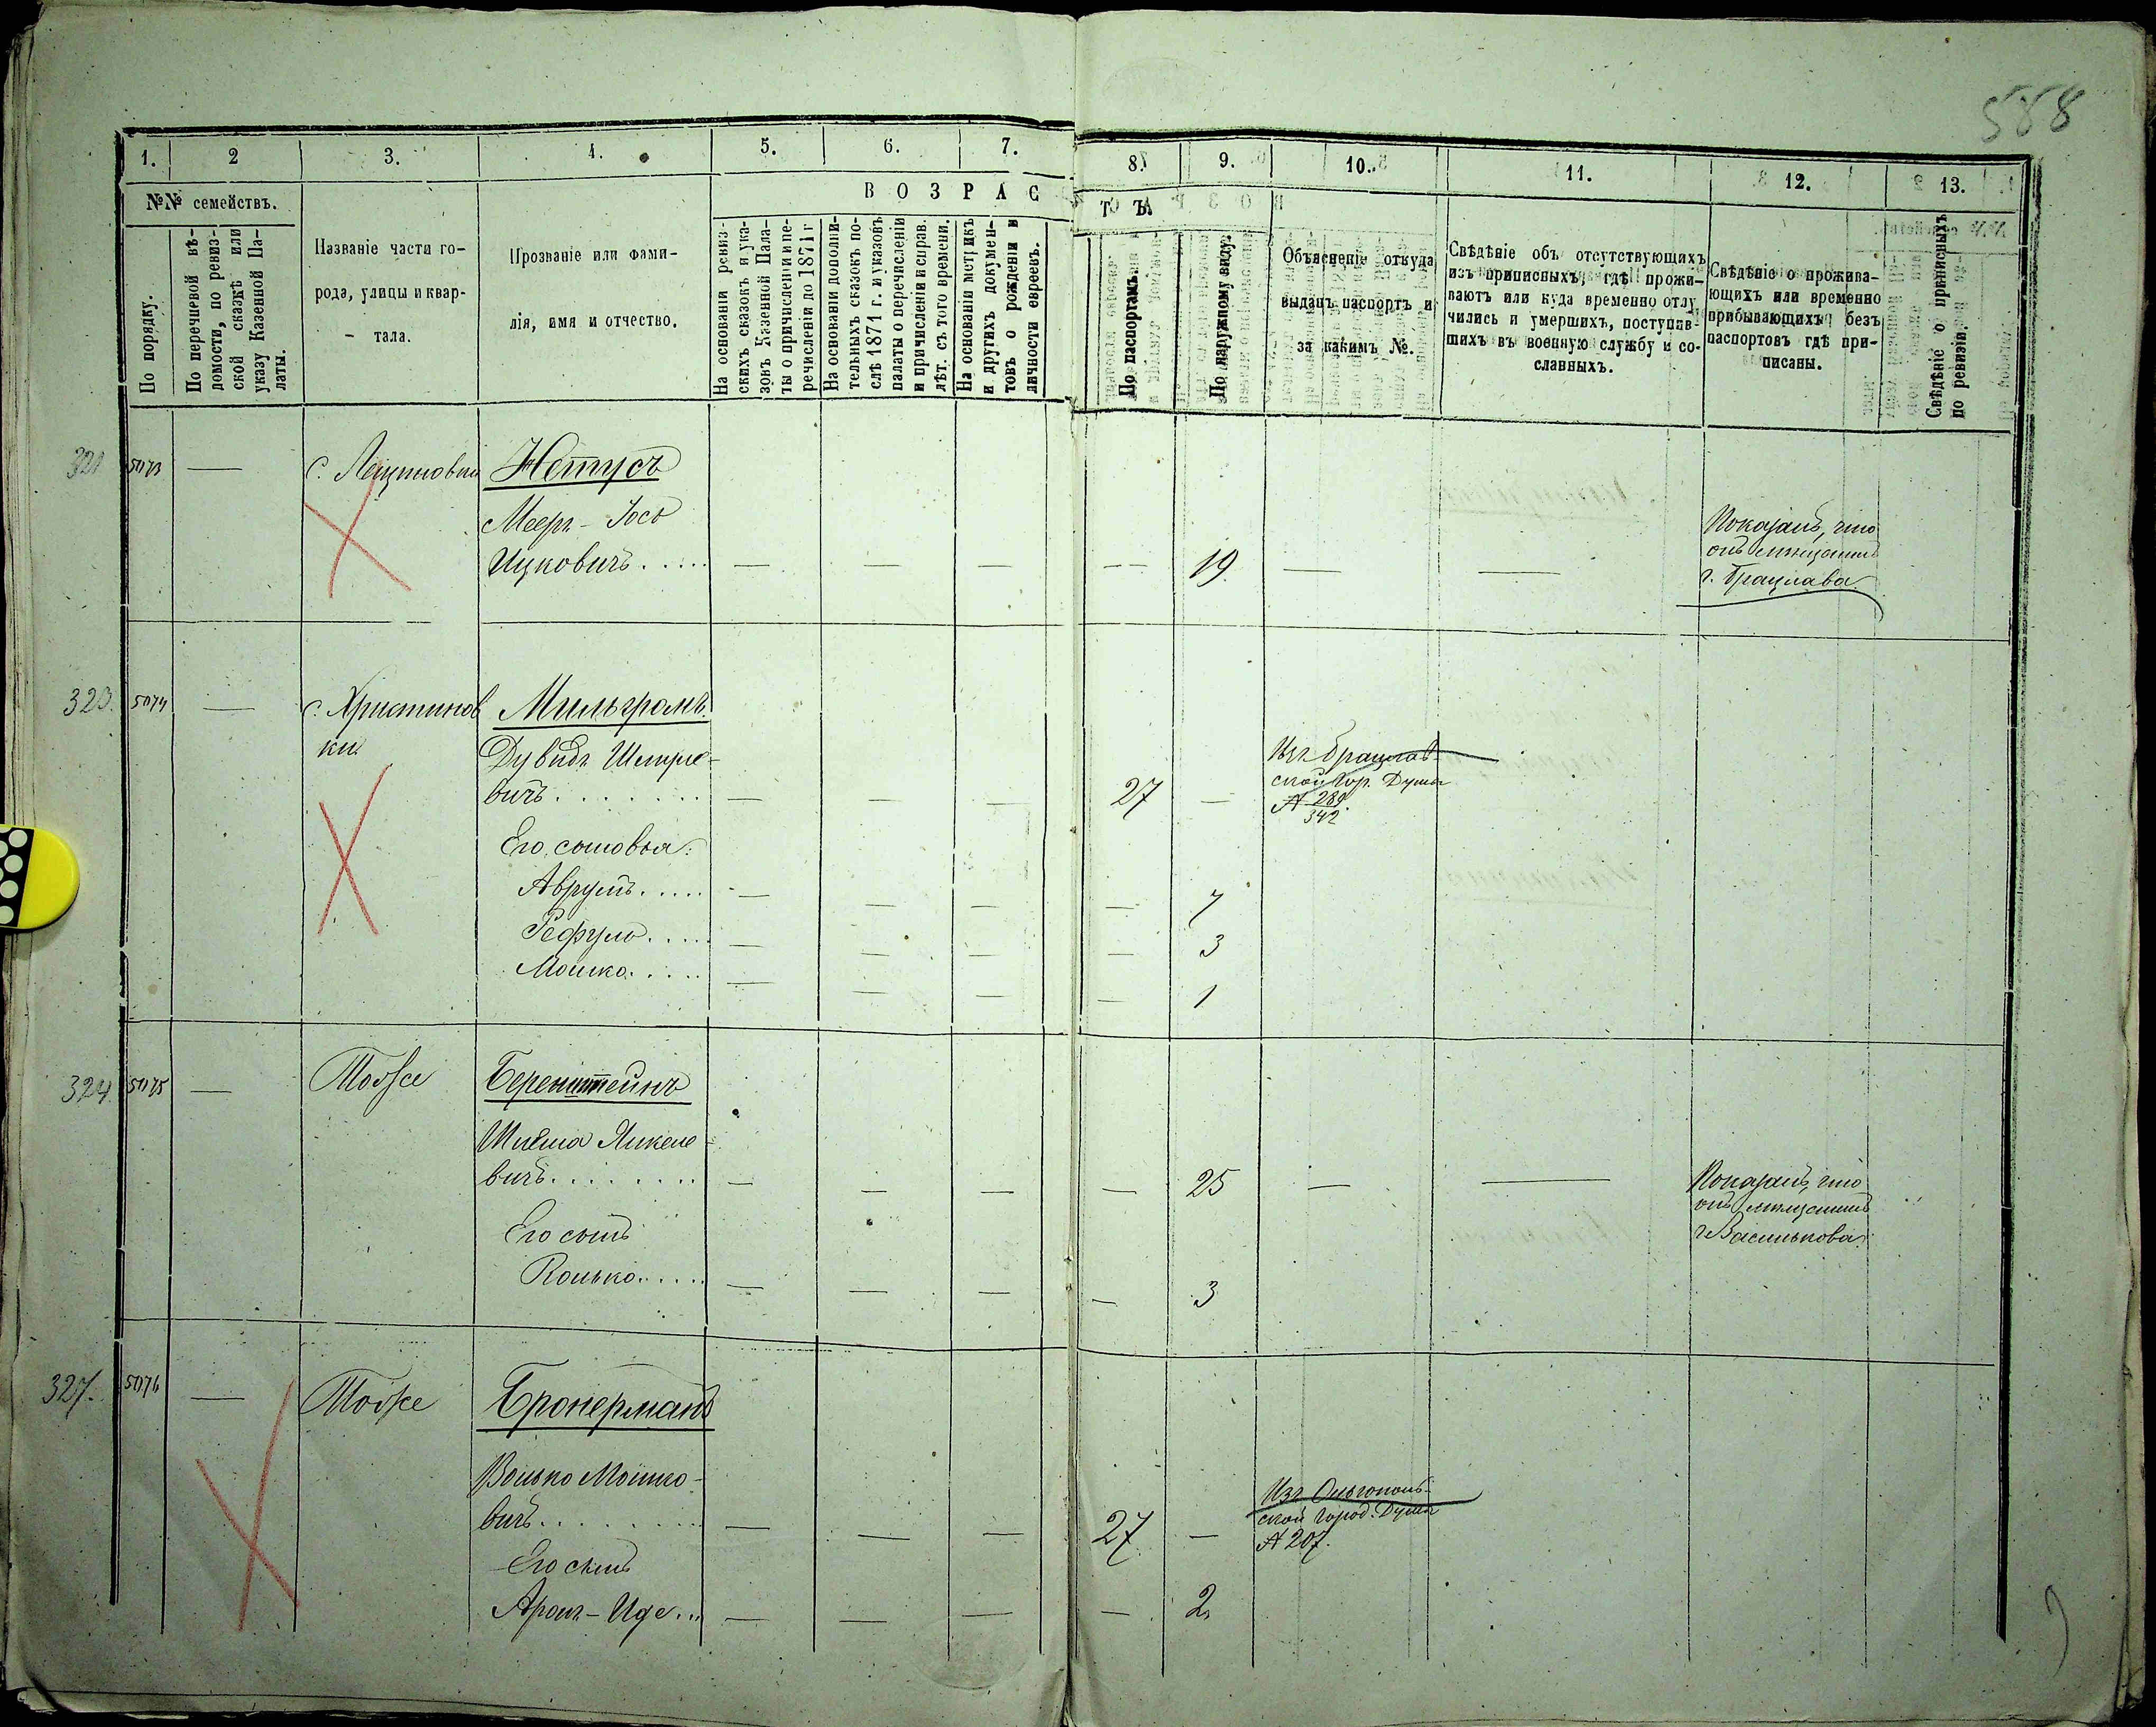 588
1.
2
3.
4.
5.
6.
7.
8.
9.
10.
11.
12.
13.
№№ семействъ.
ВОЗРАС
ТЪ.
По порядку.
По перечневой вѣ-
домости, по ревиз-
ской сказкѣ или
указу Казенной Па-
латы.
Названіе части го-
рода, улицы и квар-
- тала.
Прозваніе или фами-
лія, имя и отчество.
На основаніи ревиз-
скихъ сказокъ и ука-
зовъ Казенной Пала-
ты о причисленіи и пе-
речисленіи до 1871 г
На основаніи дополни-
тельныхъ сказокъ по-
слѣ 1871 г. и указовъ
палаты о перечисленіи
и причисленіи и справ.
лѣт. съ того времени.
На основаніи метрикъ
и другихъ докумен-
товъ о рожденіи и
личности евреевъ.
По паспортамъ.
По наружному виду.
Объясненіе откуда
выданъ паспортъ и
за какимъ №.
Свѣдѣніе объ отсутствующихъ
изъ приписныхъ, гдѣ прожи-
ваютъ или куда временно отлу
чились и умершихъ, поступив-
шихъ въ военную службу и со-
сланыхъ.
Свѣдѣніе о прожива-
ющихъ или временно
прибывающихъ безъ
паспортовъ гдѣ при-
писаны.
Свѣдѣніе о приписныхъ
по ревизіи.
321
5073
—
с. Лещиновки
Нетусъ
Мееръ - Йось
Ицковичъ.....
19.
Показалъ, что
онъ мѣщанинъ
г. Брацлава
323.
5074
—
с. Христинов
ки
Мильгромъ.
Дувидъ Шмуле-
вичъ.......
27
Изъ Брацлав-
ской Гор. Думы
№ 289.
342
Его сыновья:
Аврумъ.....
7
Рефуль.....
3
Мошко.....
1
324
5075
—
Тоже
Беренштейнъ
Шлема Янкеле-
вичъ........
25
Показалъ, что
онъ мѣщанинъ
г. Василькова
Его сынъ
3
327.
5076
—
Тоже
Бронерманъ
Волько Мошко-
вичъ........
27
Изъ Ольгополь-
ской Город. Думы
№ 207.
Его сынъ
Аронъ - Иде...
2